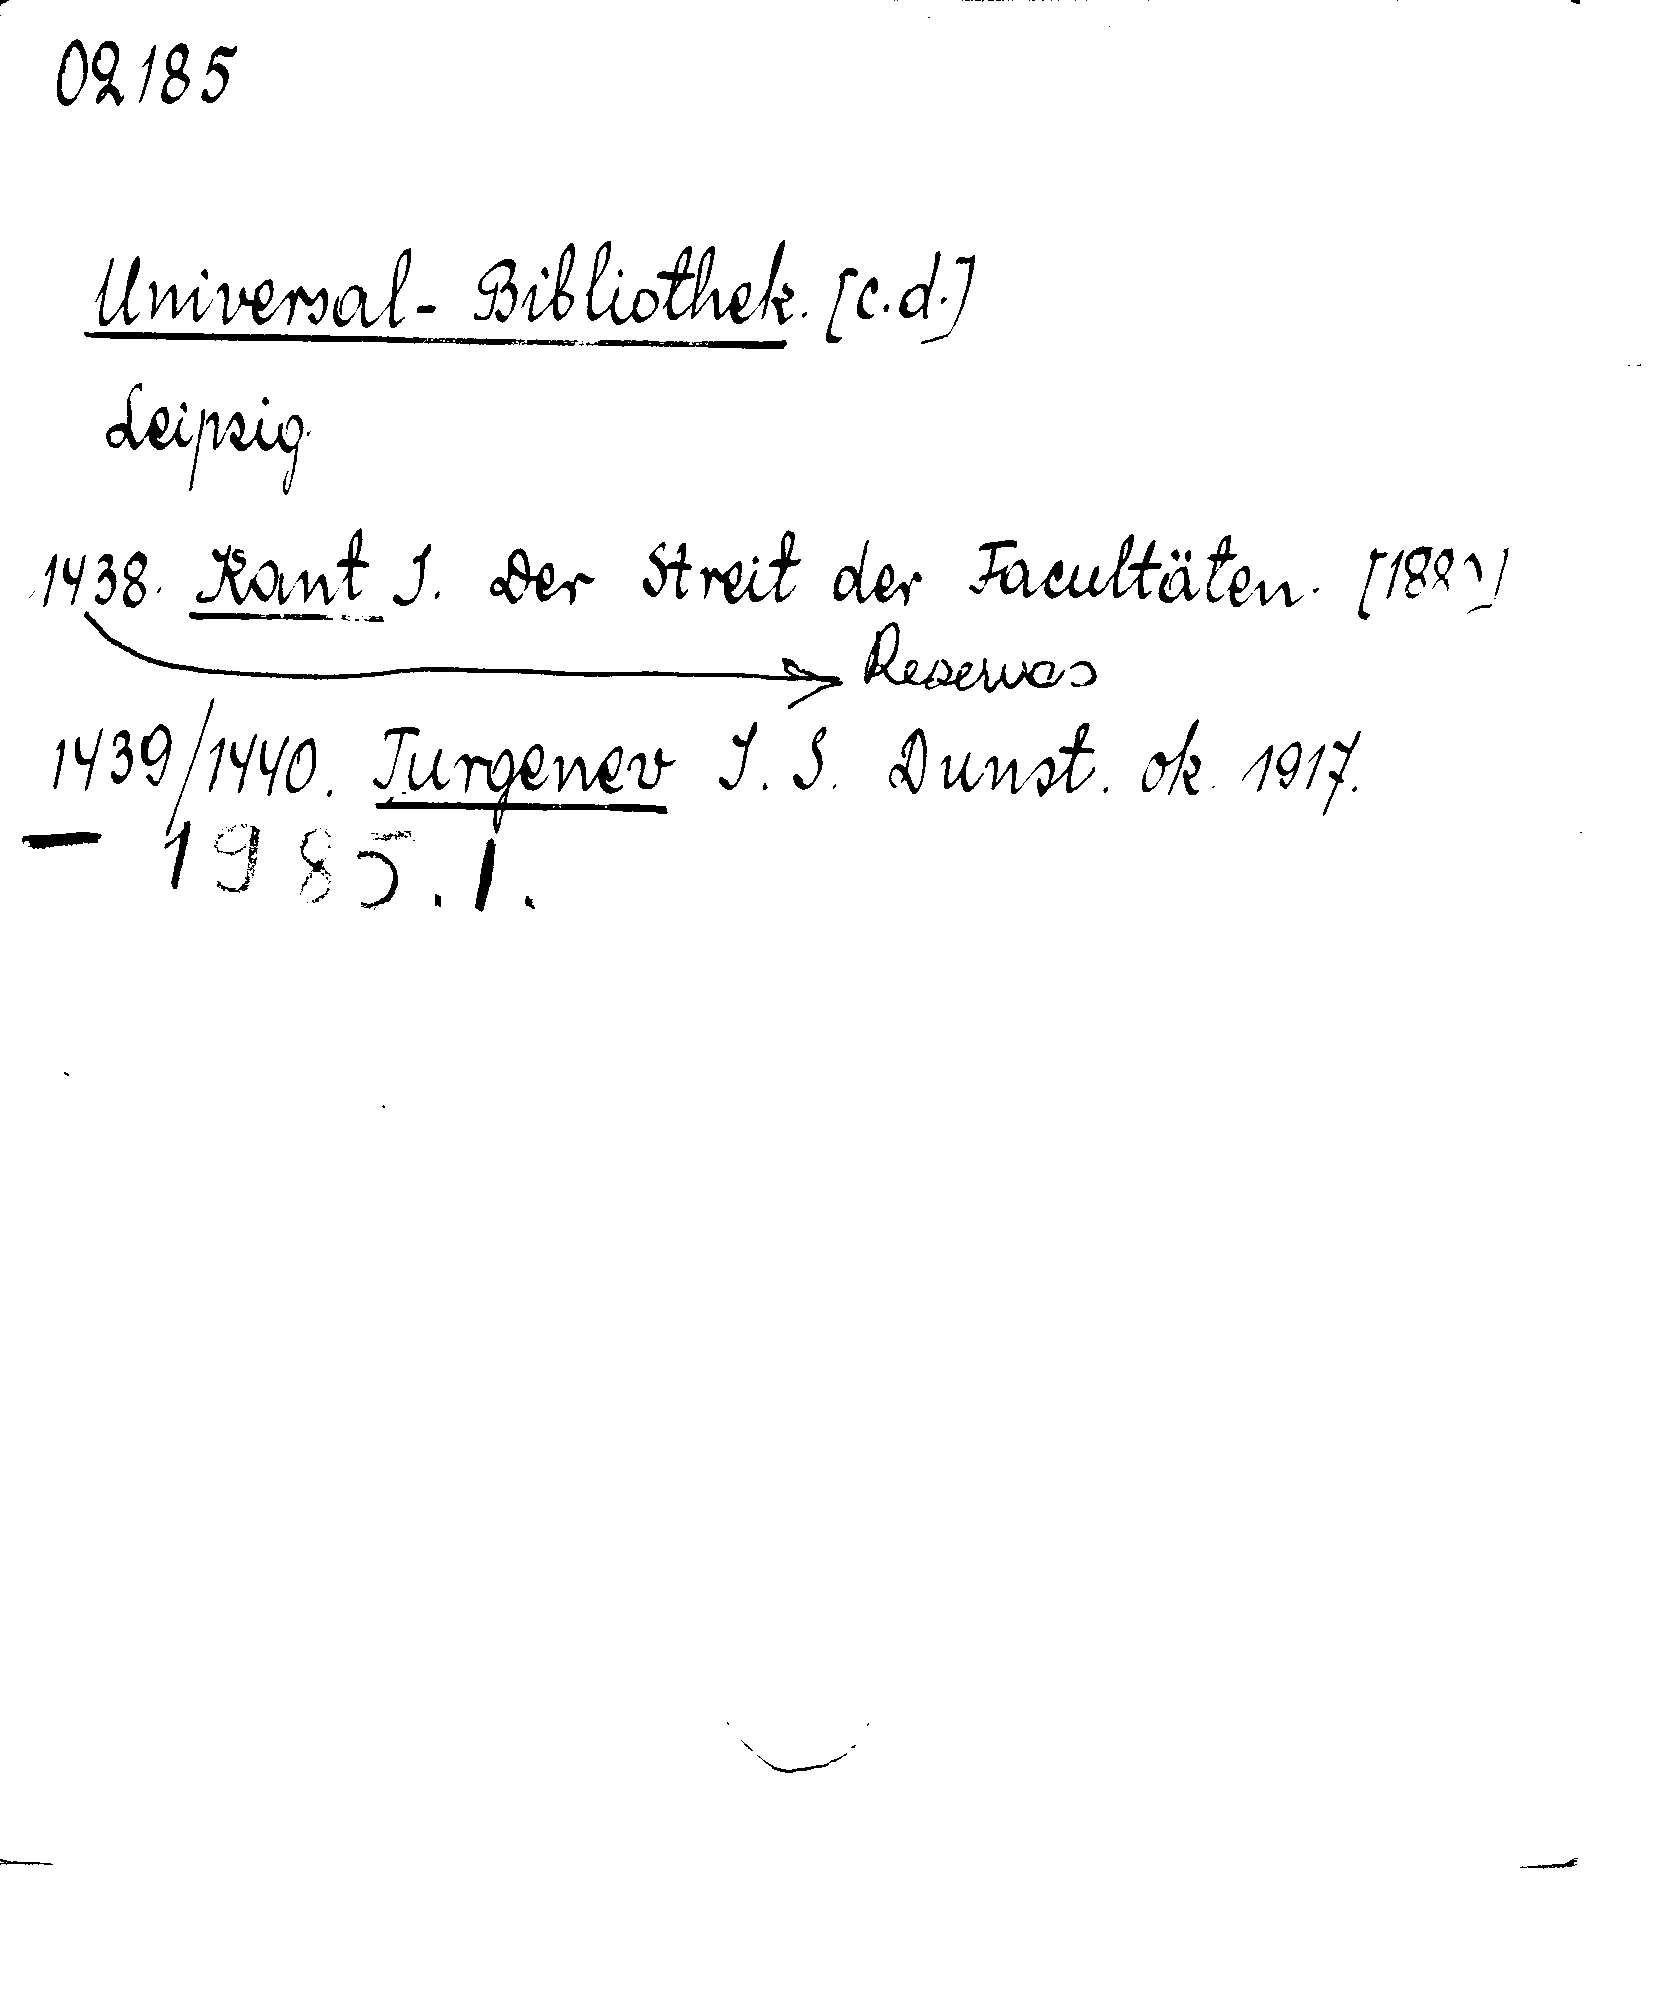 02185
Universal-Bibliothek. [c.d.]
Leipzig
1438. Kant I. Der Streit der Facultäten.
Reservas
1439/1440. Turgenev I. S. Dunst. ok. 1917.
— 1985.1.